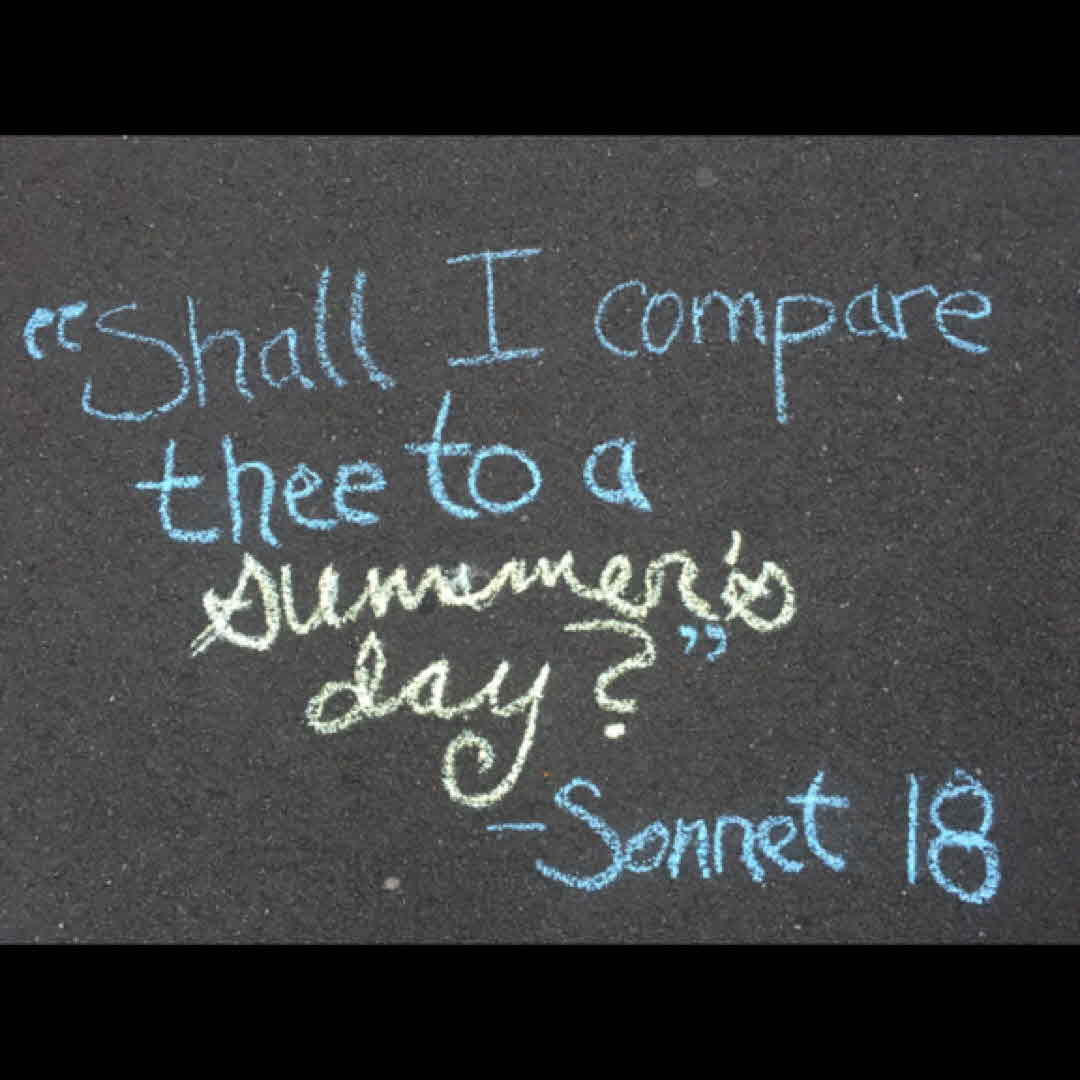 “Shall I compare
thee to a
summer's
day?”
-Sonnet 18